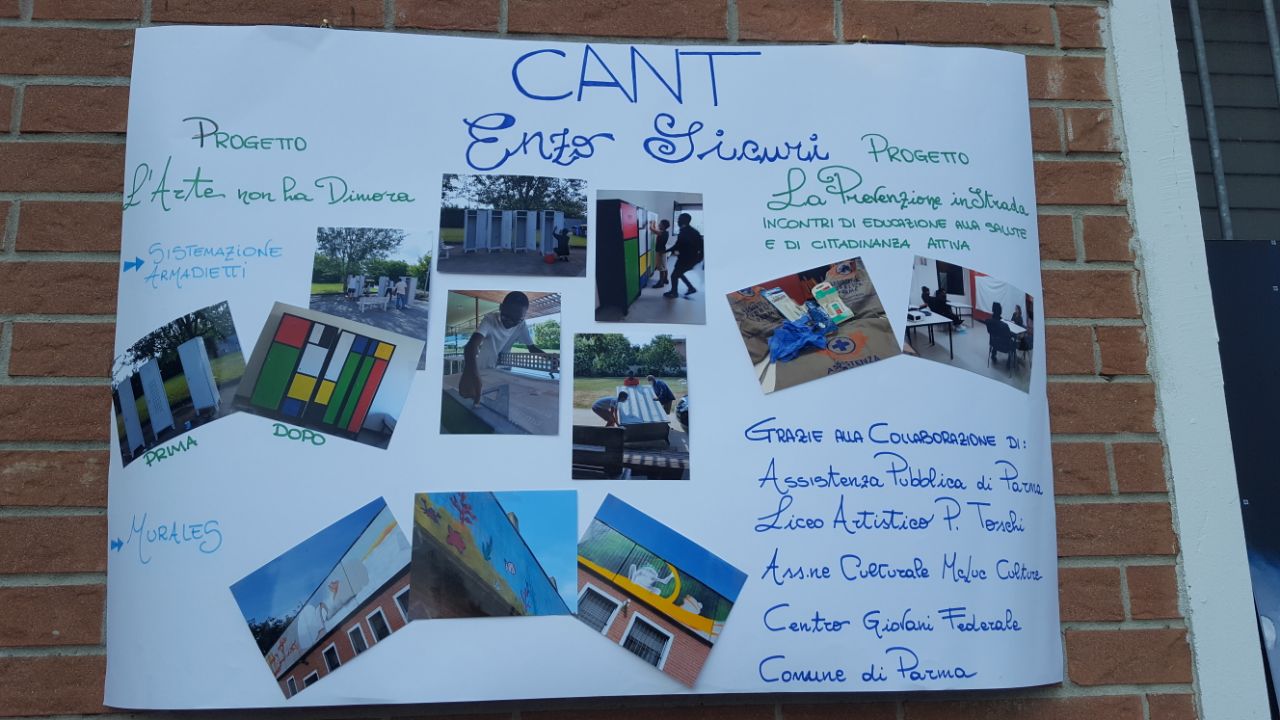 CANT
Enzo Sicuri
PROGETTO
L'Arte non ha Dimora
SISTEMAZIONE
ARMADIETTI
PRIMA
DOPO
MURALES
PROGETTO
La Prevenzione in Strada
INCONTRI DI EDUCAZIONE ALLA SALUTE
E DI CITTADINANZA ATTIVA
GRAZIE ALLA COLLABORAZIONE DI:
Assistenza Pubblica di Parma
Liceo Artistico P. Toschi
Ass.ne Culturale Mc/uc Culture
Centro Giovani Federale
Comune di Parma